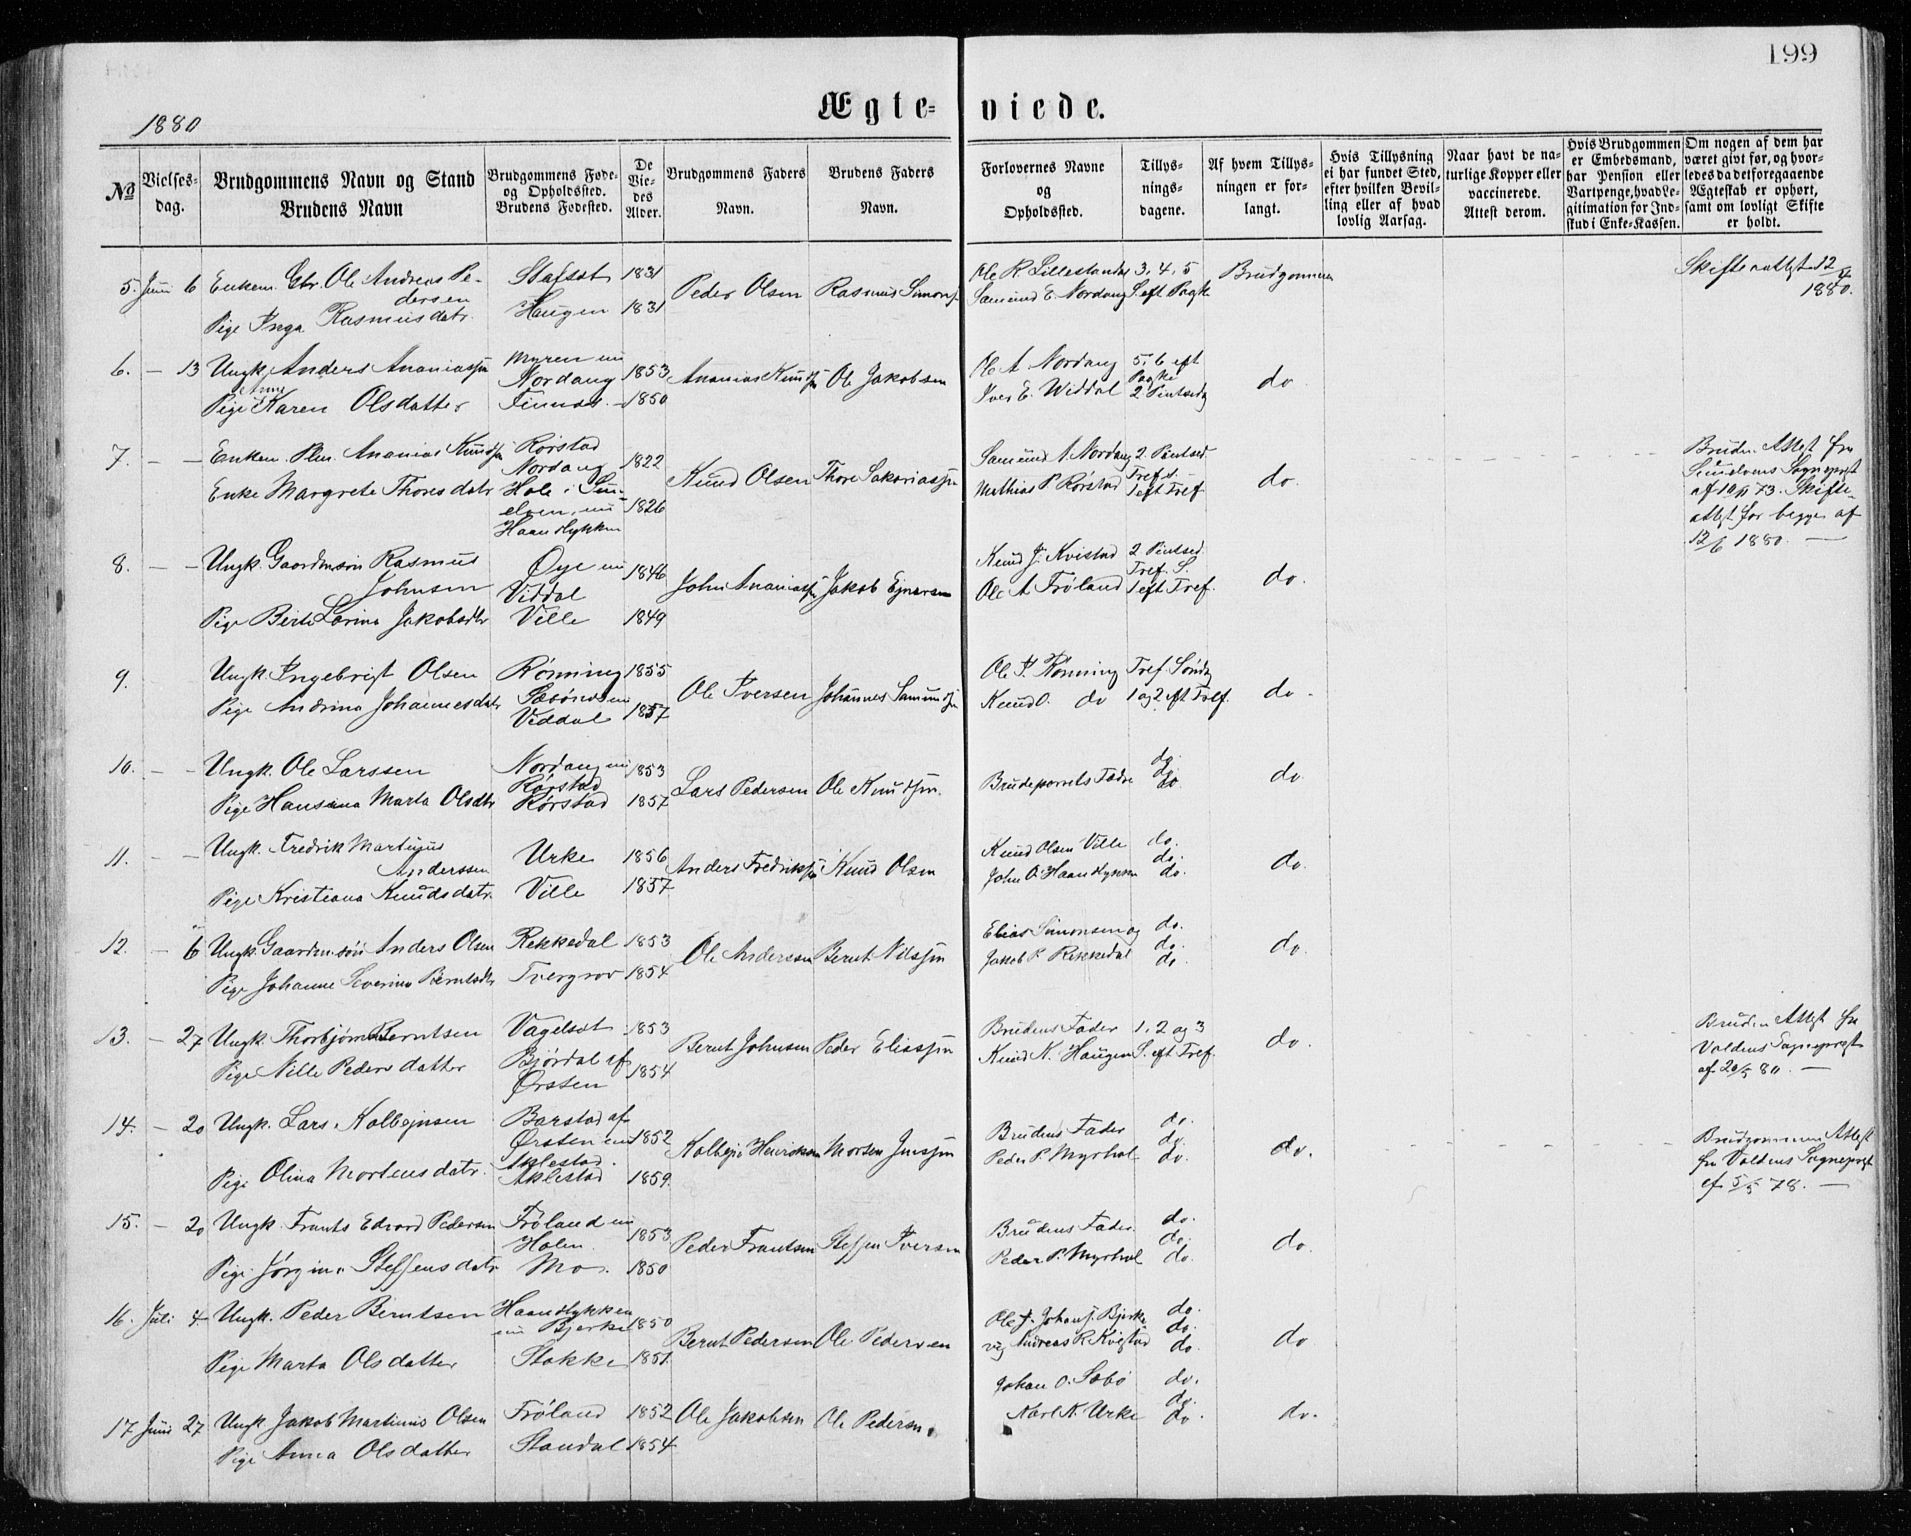 199
1880
Ægte-
viede.
№
Vielses-
dag.
Brudgommens Navn og Stand
Brudens Navn
Brudgommens Føde-
og Opholdssted.
Brudens Fødested.
De
Vie-
des
Alder.
Brudgommens Faders
Navn.
Brudens Faders
Navn.
Forlovernes Navne
og
Opholdssted.
Tillys-
nings-
dagene.
Af hvem Tillys-
ningen er for-
langt.
Hvis Tillysning
ei har fundet Sted,
efter hvilken Bevil-
ling eller af hvad
lovlig Aarsag.
Naar havt de na-
turlige Kopper eller
vaccinerede.
Attest derom.
Hvis Brudgommen
er Embedsmand,
har Pension eller
Vartpenge, hvad Le-
gitimation for Ind-
skud i Enke-Kassen.
Om nogen af dem har
været givt før, og hvor-
ledes da det foregaaende
Ægteskab er ophørt,
samt om lovligt Skifte
er holdt.
5. Juni 6 Enkem. Gbr. Ole Andreas Pe-
dersen
Pige Inga Rasmusdatr.
Stafset 1831
Haugen 1831
Peder Olsen Rasmus Simons.
Ole R. Lillestandal 3, 4, 5
Samund E. Nordang S. eft Paaske
Brudgommen
Skifteattest 12/4
1880.
6. – 13 Ungk. Anders Ananiassøn
Pige Anne Karen Olsdatter
Myren nu
Nordang 1853
Finnes 1850
Ananias Knudsøn Ole Jakobsen
Ole A Nordang 5, 6 eft
Paaske
Iver E. Widdal 2 Pintsedag
do
7. – – Enkem. Ananias Knudsøn
Enke Margrete Thoresdatr
Rørstad
Nordang 1822
Hole i Sun-
elven, nu 1826
Haandlykken
Knud Olsen Thore Sakariassøn
Samund A. Nordang 2 Pintsed.
Tref. S.
Mathias P Rørstad 1 eft Tref.
do.
Bruden Attest fra
Sunelvens Sogneprest
af 10/11 73. Skifte-
attest for begge af
12/6 1880. –
8. – – Ungk. Gaardmsøn Rasmus
Johnsen
Pige Berte Larina Jakobsdtr
Øye nu 1846
Viddal
Ville 1849
John Ananiassøn Jakob Ejnarsen
Knud J. Kvistad 2 Pintsed.
Tref. S.
Ole A Frøland 1 eft Tref.
do.
9. Ungk. Ingebrigt Olsen
Pige Andrina Johannesdatr
Rønning 1855
Sæbønes nu
Viddal 1857
Ole Iversen Johannes Samundsøn
Ole I. Rønning Tref. Søndg
Knud O. do 1 og 2 eft Tref.
do.
10. – – Ungk. Ole Larssen
Pige Hansina Marta Olsdtr
Nordang nu 1853
Rørstad
Rørstad 1857
Lars Pedersen Ole Knudsøn.
Brudeparrets Fædre do.
do.
do.
do.
11. – – Ungk. Fredrik Martinus
Anderssen
Pige Kristiana Knudsdatr.
Urke 1856
Ville 1857
Anders Fredriksøn Knud Olsen
Knud Olsen Ville do.
do.
John O. Haandlykken do.
do.
12. – 6 Ungk. Gaardmsøn Anders Olsen
Pige Johanne Severine Berntsdtr
Rekkedal 1853
Tvergrov 1854
Ole Anderssen Bernt Nilssøn
Elias Simonsen og do.
do.
Jakob P. Rekkedal do.
do.
13. – 27 Ungk. Thorbjørn Berntsen
Pige Nille Pedersdatter
Vagelset 1853
Bjørdal af
Ørsten 1854
Bernt Johnsen Peder Eliassøn
Brudens Fader 1, 2 og 3
Knud N. Haugen S. eft Tref.
do.
Bruden Attest fra
Voldens Sogneprest
af 20/5 80. –
14. – 20 Ungk. Lars Kolbejnsen
Pige Olina Mortensdatr.
Barstad af
Ørsten nu 1852
Aklestad.
Aklestad 1859.
Kolbejn Henriksen Morten Jenssøn
Brudens Fader do.
do.
Peder P. Myrhol do.
do.
Brudgommen Attest
fra Voldens Sogneprest
af 5/5 78. –
15. – 20 Ungk. Frants Edvard Pedersen
Pige Jørgine Steffensdatr
Frøland nu
Holen 1853
Mo. 1850
Peder Frantsen Steffen Iversen
Brudens Fader do.
do.
Peder P. Myrhol do.
do.
16. Juli 4. Ungk. Peder Berntsen
Pige Marta Olsdatter
Haandlykken
nu Bjerke 1850
Stokke 1851.
Bernt Pedersen Ole Pedersen
Ole J. Johans. Bjerke do.
do.
og Andreas R. Kvistad do.
do
17 Juni 27 Ungk. Jakob Martinus Olsen
Pige Anna Olsdatter
Frøland 1852
Standal 1854
Ole Jakobsen Ole Pedersen
Johan O. Sæbø do.
do.
Karl N. Urke do.
do.